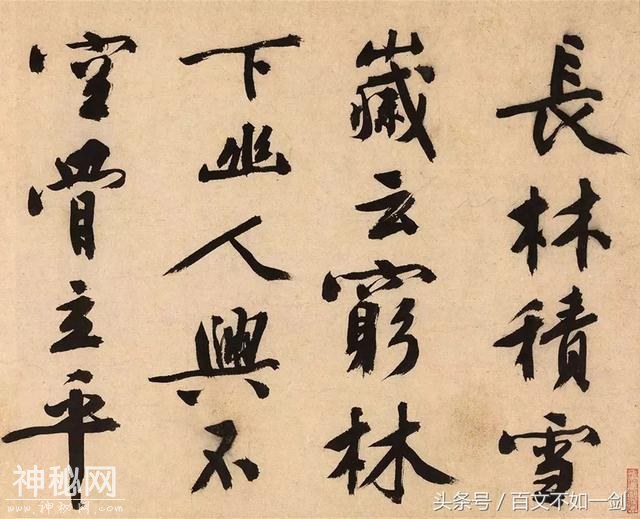 長林積雪
嵗云窮林
下幽人興不
空骨立平
神秘网
头条号 / 百文不如一剑